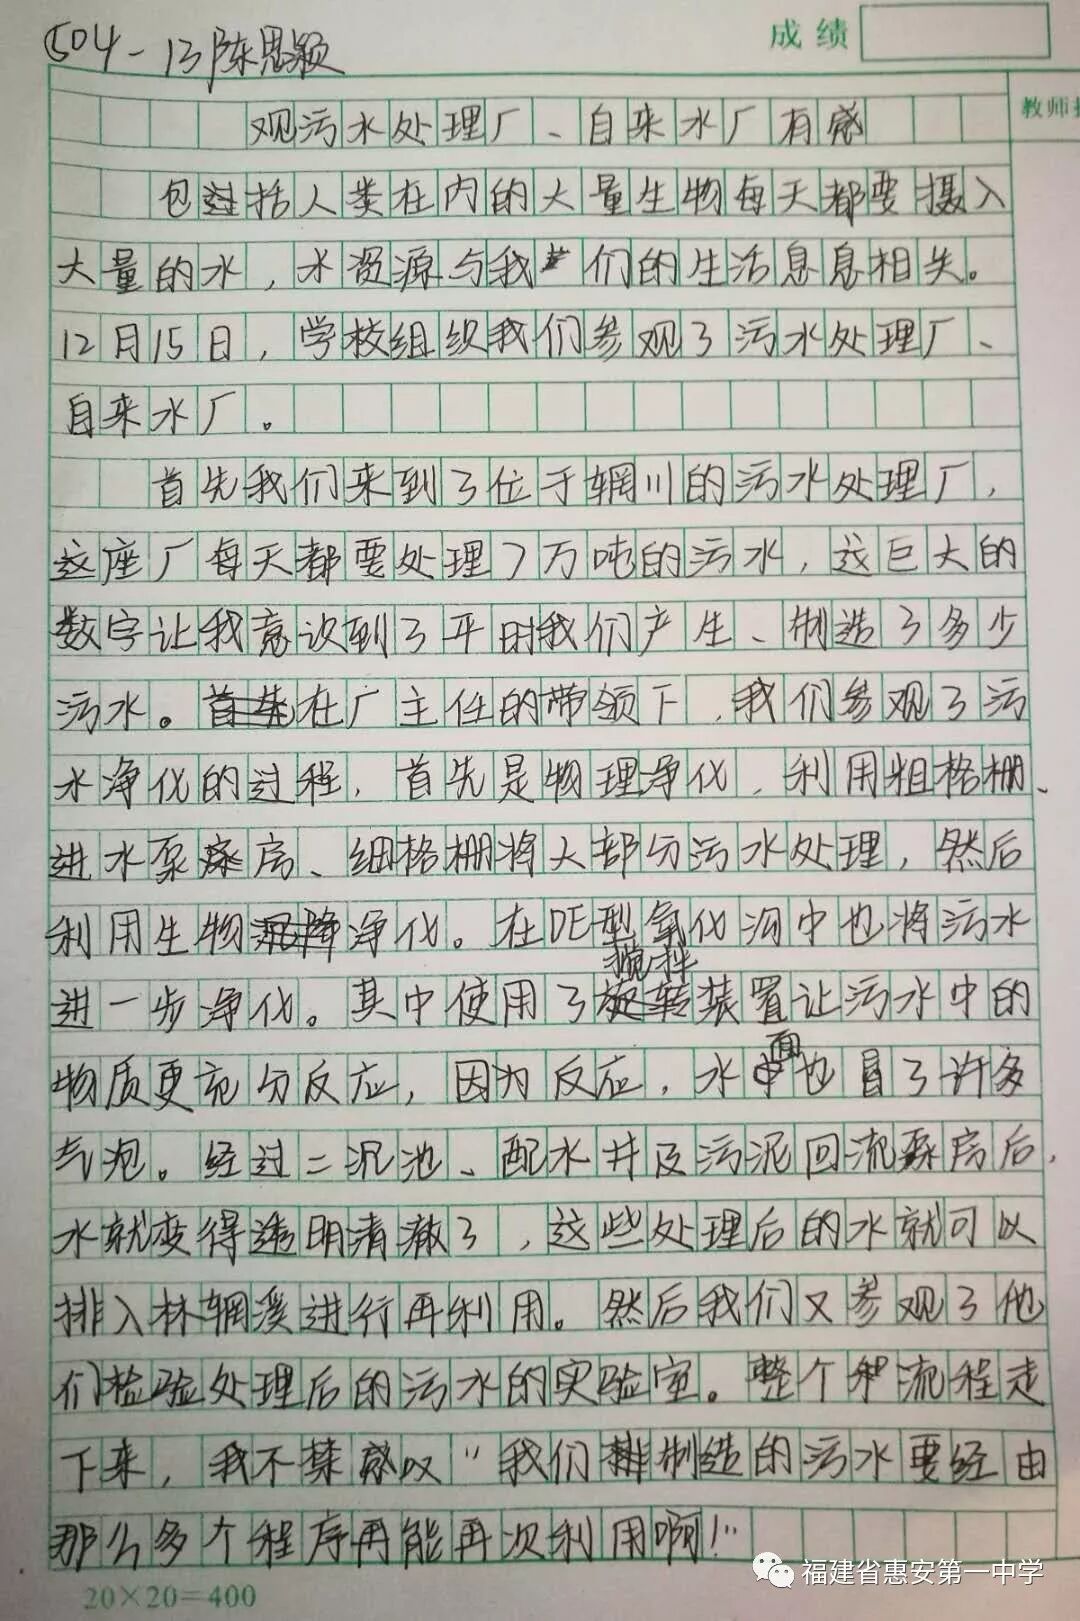 成绩
504-13陈思颖
教师
观污水处理厂、自来水厂有感
包括人类在内的大量生物每天都要摄入
大量的水，水资源与我们的生活息息相关。
12月15日，学校组织我们参观了污水处理厂、
自来水厂。
首先我们来到了位于辋川的污水处理厂，
这座厂每天都要处理7万吨的污水，这巨大的
数字让我意识到了平时我们产生、制造了多少
污水。在厂主任的带领下，我们参观了污
水净化的过程，首先是物理净化，利用粗格栅、
进水泵房、细格栅将大部分污水处理，然后
利用生物净化。在DE型氧化沟中也将污水
进一步净化。其中使用了搅拌装置让污水中的
物质更充分反应，因为反应，水面也冒了许多
气泡。经过二沉池、配水井及污泥回流泵房后，
水就变得透明清澈了，这些处理后的水就可以
排入林辋溪进行再利用。然后我们又参观了他
们检验处理后的污水的实验室。整个流程走
下来，我不禁感叹“我们制造的污水要经由
那么多个程序再能再次利用啊！”
20×20=400
福建省惠安第一中学